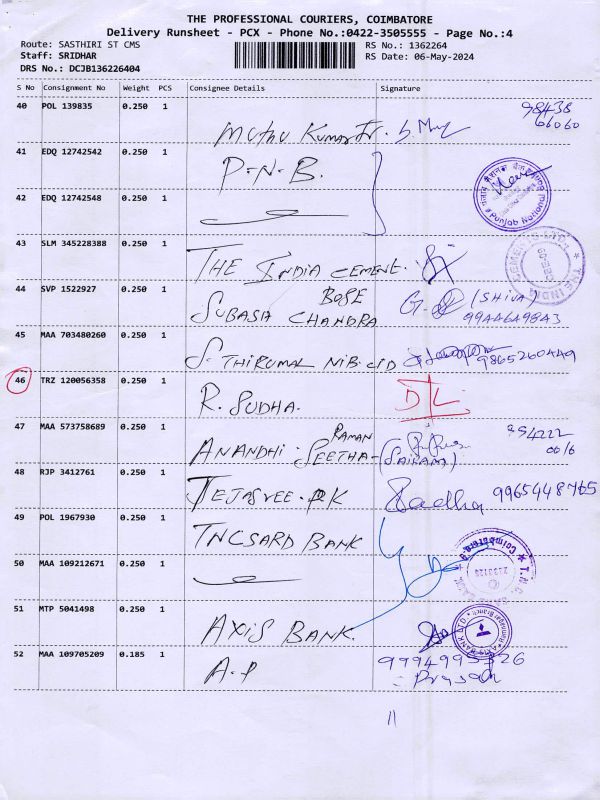 THE PROFESSIONAL COURIERS, COIMBATORE
Delivery Runsheet - PCX - Phone No.:0422-3505555 - Page No.:4
Route: SASTHIRI ST CMS
RS No.: 1362264
Staff: SRIDHAR
RS Date: 06-May-2024
DRS No.: DCJB136226404
S No Consignment No Weight PCS Consignee Details Signature
40 POL 139835 0.250 1
98438
66060
Muthu Kumar
41 EDQ 12742542 0.250 1
P-N-B.
42 EDQ 12742548 0.250 1
Punjab National
43 SLM 345228388 0.250 1
THE INDIA CEMENT.
44 SVP 1522927 0.250 1
SUBASH CHANDRA BOSE
G. (SHIVA)
45 MAA 703480260 0.250 1
S. THIRUMAL NIB. CID
9865260449
46 TRZ 120056358 0.250 1
R. SUDHA.
DL
47 MAA 573758689 0.250 1
ANANDHI SEETHA-RAMAN
(SAIRAM)
48 RJP 3412761 0.250 1
TEJASREE. RK
Radha 9965448765
49 POL 1967930 0.250 1
TNCSARD BANK
50 MAA 109212671 0.250 1
51 MTP 5041498 0.250 1
AXIS BANK.
52 MAA 109705209 0.185 1
A.P
9994995326
Prasad
11